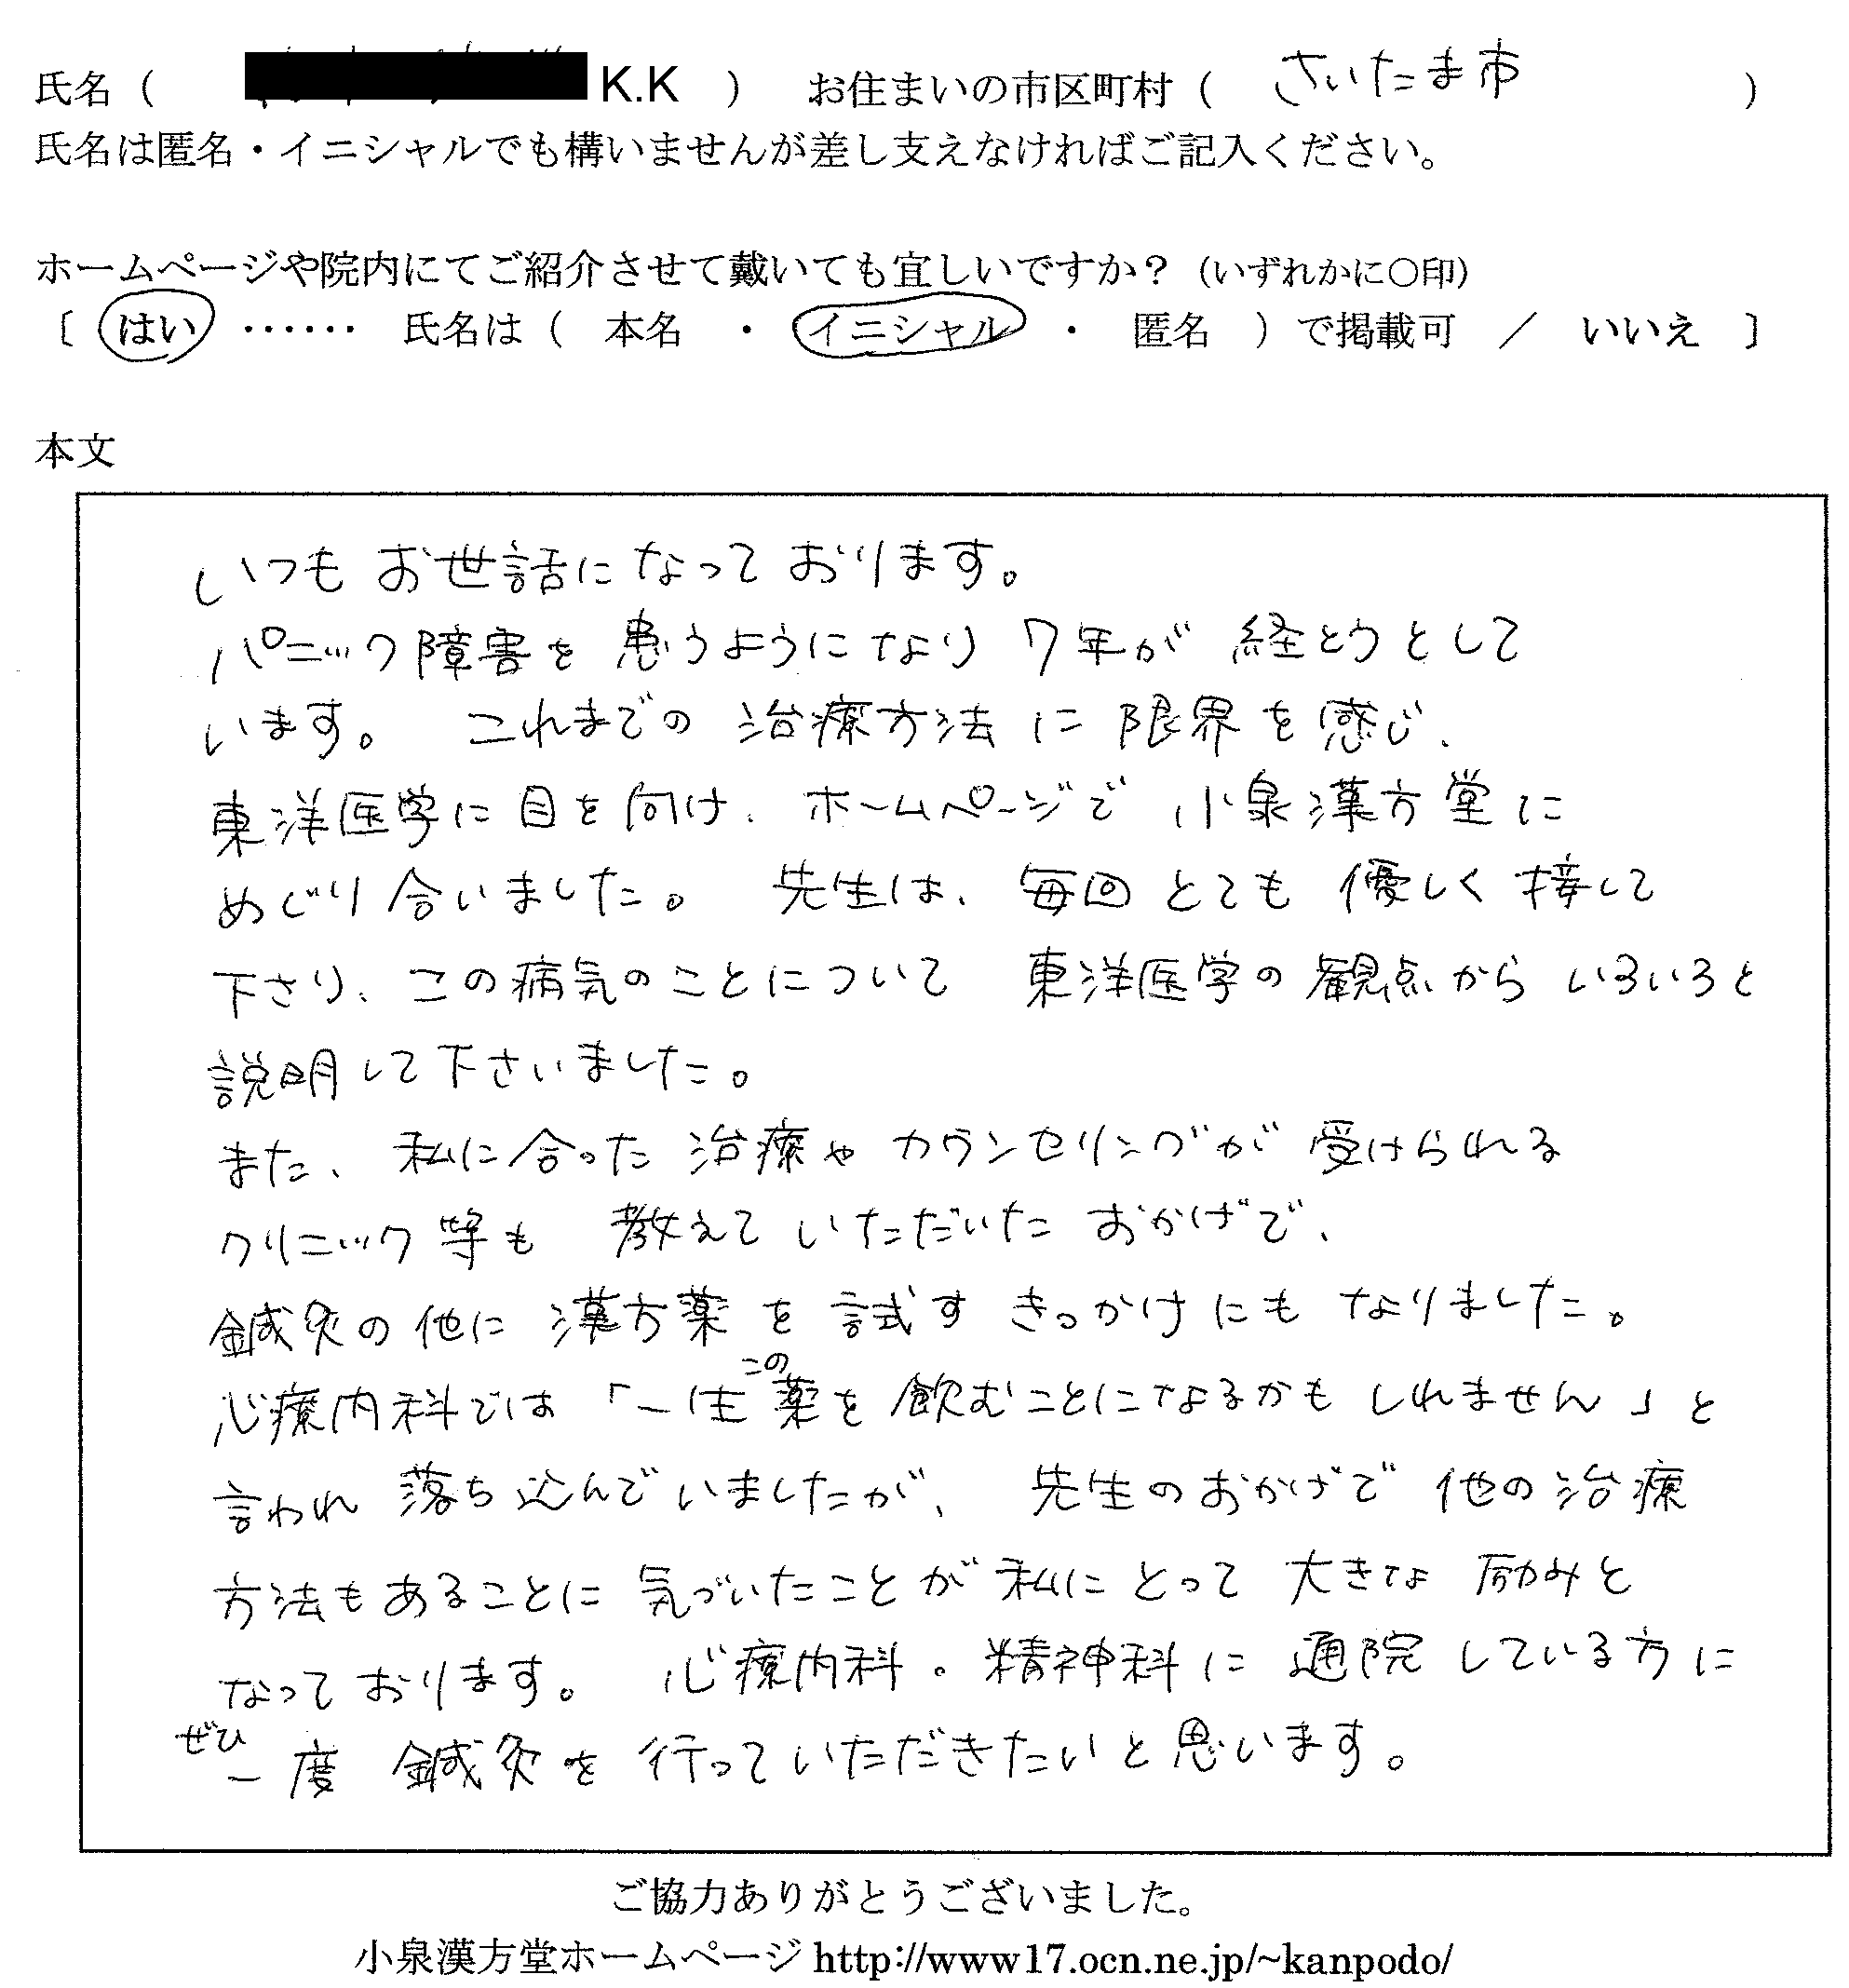 氏名（ K.K ） お住まいの市区町村（ さいたま市 ）
氏名は匿名・イニシャルでも構いませんが差し支えなければご記入ください。
ホームページや院内にてご紹介させて戴いても宜しいですか？（いずれかに〇印）
〔 はい …… 氏名は（ 本名 ・ イニシャル ・ 匿名 ）で掲載可 ／ いいえ 〕
本文
いつもお世話になっております。
パニック障害を患うようになり7年が経とうとして
います。 これまでの治療方法に限界を感じ、
東洋医学に目を向け、ホームページで小泉漢方堂に
めぐり合いました。 先生は、毎回とても優しく接して
下さり、この病気のことについて 東洋医学の観点からいろいろと
説明して下さいました。
また、私に合った治療やカウンセリングが受けられる
クリニック等も 教えていただいたおかげで、
鍼灸の他に漢方薬を試すきっかけにもなりました。
心療内科では「一生この薬を飲むことになるかもしれません」と
言われ落ち込んでいましたが、 先生のおかげで他の治療
方法もあることに気づいたことが私にとって大きな励みと
なっております。 心療内科。精神科に通院している方に
ぜひ一度 鍼灸を行っていただきたいと思います。
ご協力ありがとうございました。
小泉漢方堂ホームページ http://www17.ocn.ne.jp/~kanpodo/